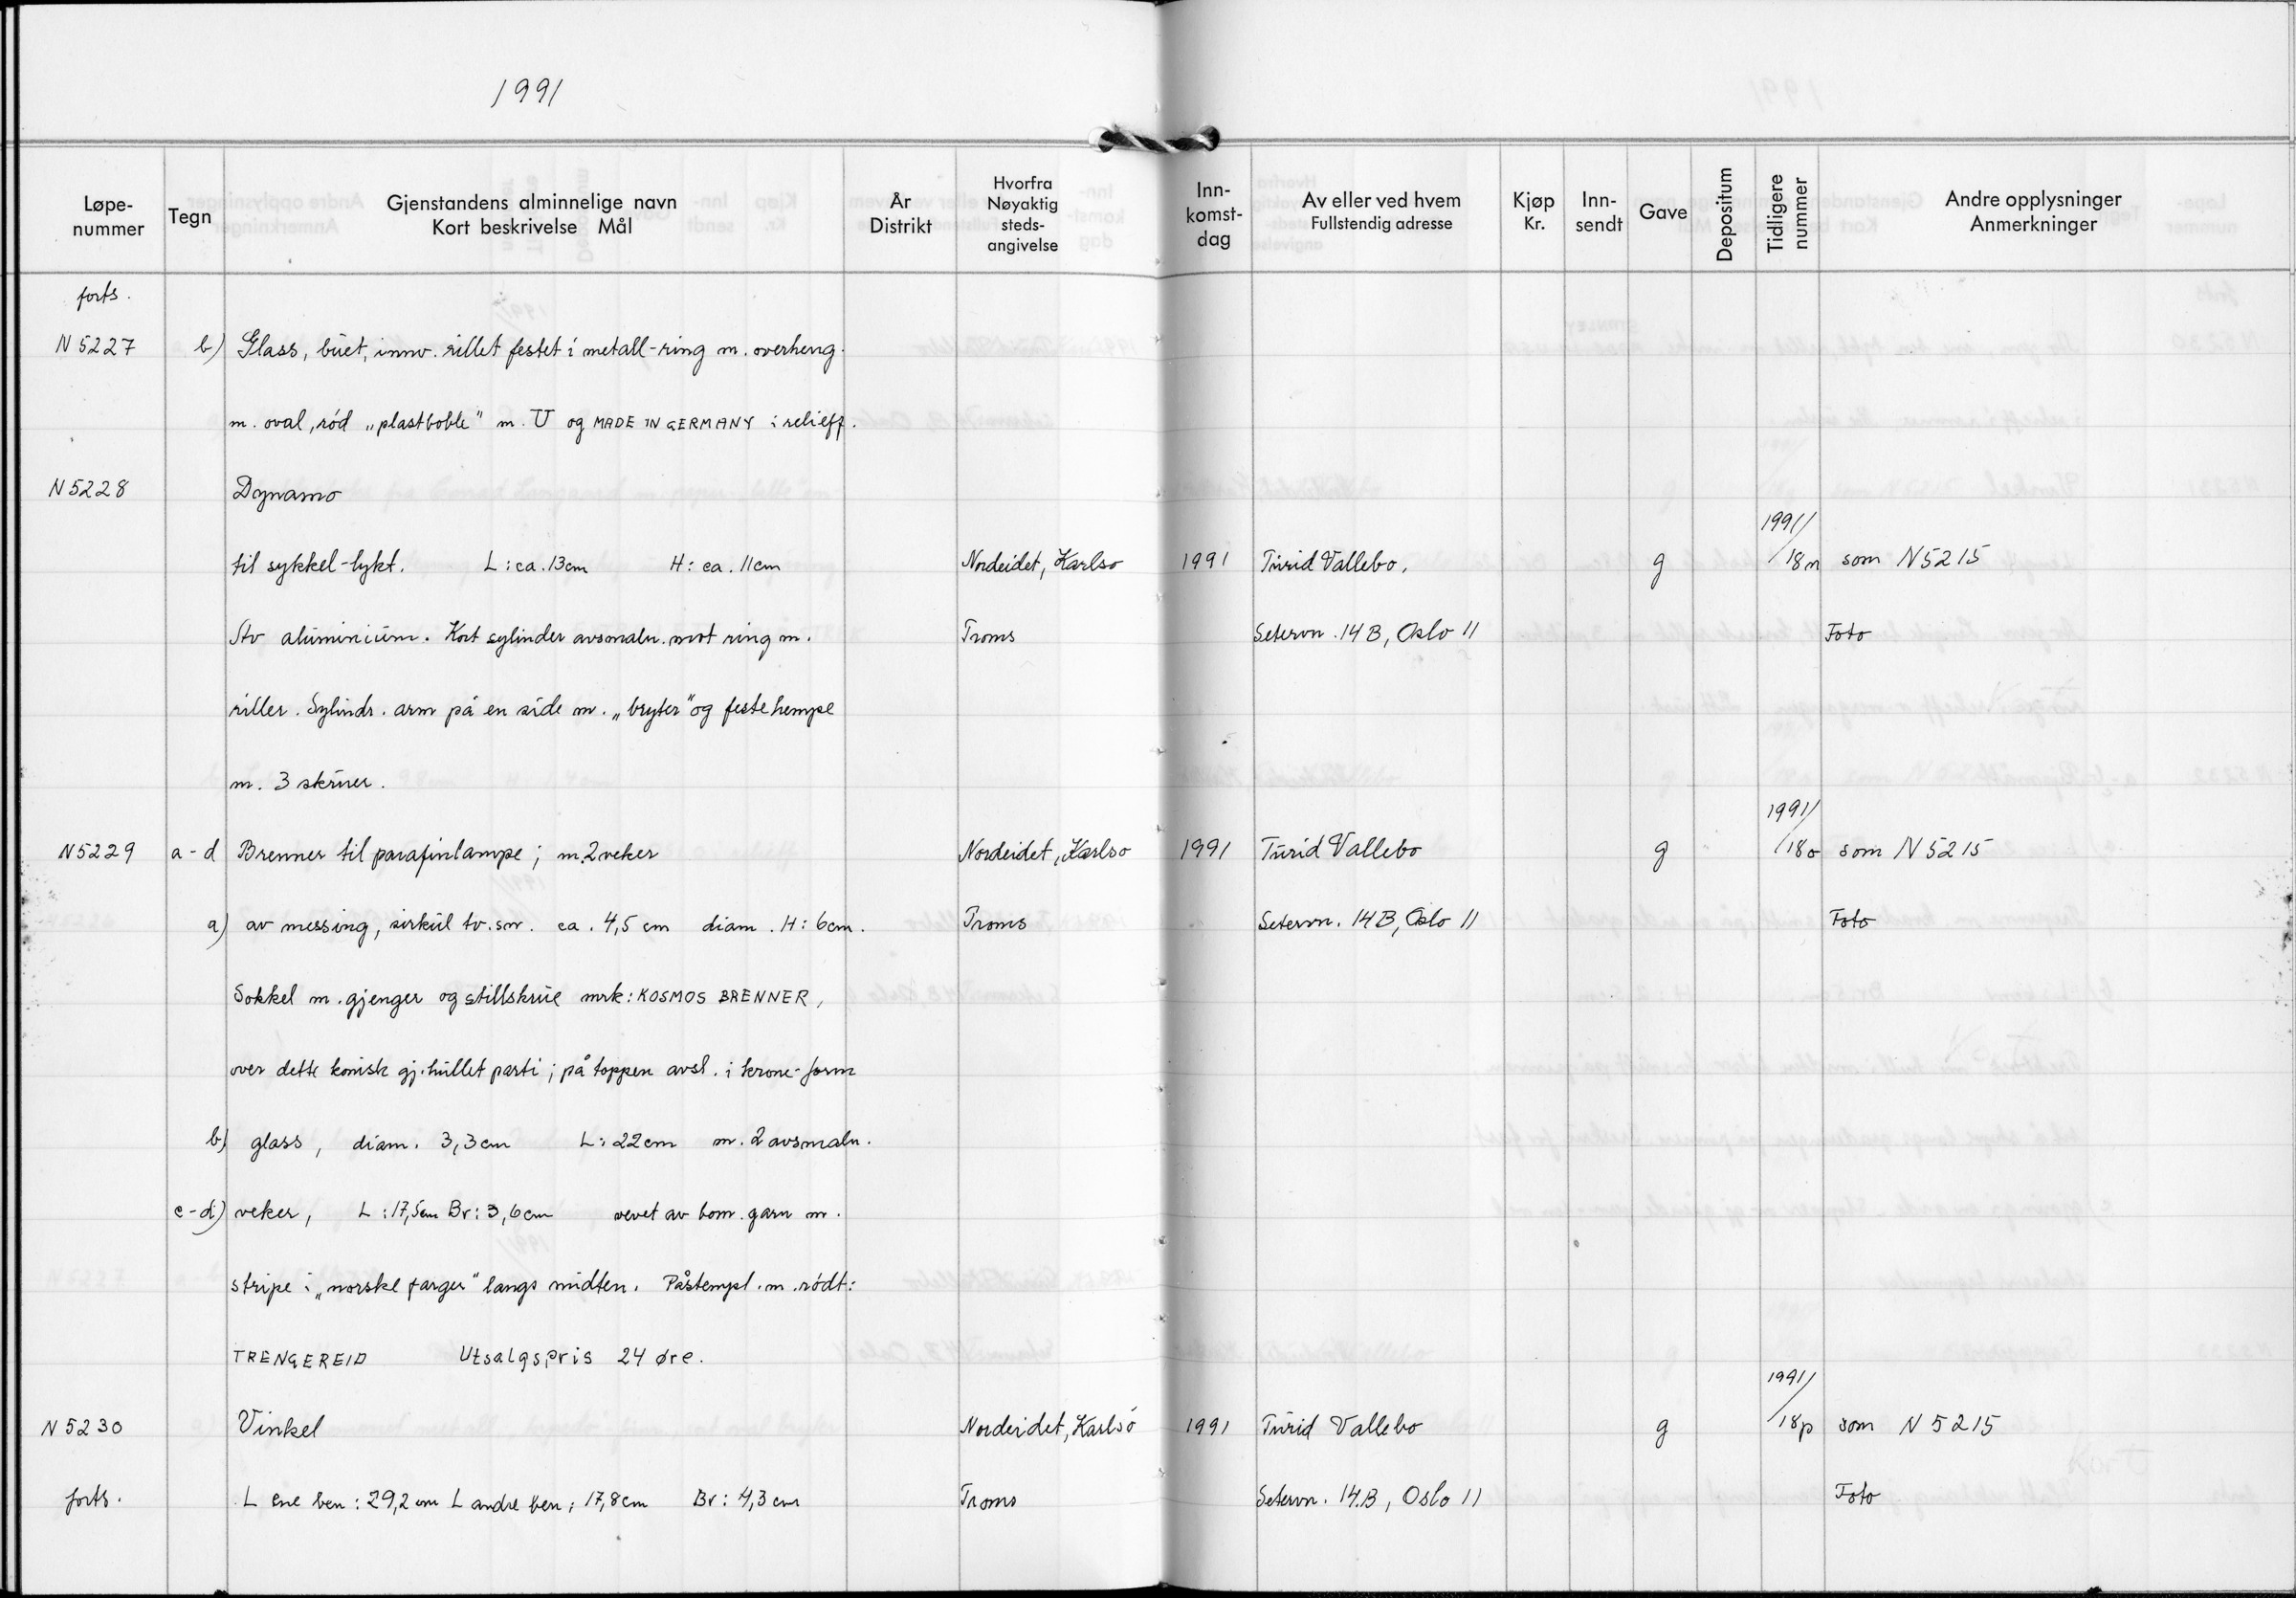 1991
Løpe-nummer Tegn Gjenstandens alminnelige navn Kort beskrivelse Mål År Distrikt Hvorfra Nøyaktig steds-angivelse Inn-komst-dag Av eller ved hvem Fullstendig adresse Kjøp Kr. Inn-sendt Gave Depositum Tidligere nummer Andre opplysninger Anmerkninger
forts.
N 5227 b) Glass, buet, innv. rillet festet i metall-ring m. overheng.
m. oval, rød „plastboble" m. U og MADE IN GERMANY i relieff.
N 5228 Dynamo
til sykkel-lykt. L: ca. 13cm H: ca. 11cm Nordeidet, Karlsø 1991 Turid Vallebo, g 1991/18n som N5215
Stv aluminium. Kort sylinder avsmaln. mot ring m. Troms Setervn. 14B, Oslo 11 Foto
riller. Sylindr. arm på en side m. „bryter" og festehempe
m. 3 skruer.
N5229 a-d Brenner til parafinlampe; m. 2 veker Nordeidet, Karlsø 1991 Turid Vallebo g 1991/18o som N5215
a) av messing, sirkul tv.sn. ca. 4,5 cm diam. H: 6cm. Troms Setervn. 14B, Oslo 11 Foto
Sokkel m. gjenger og stillskrue mrk: KOSMOS BRENNER,
over dette konisk gj.hullet parti; på toppen avsl. i krone-form
b) glass, diam. 3,3cm L: 22cm m. 2 avsmaln.
c-d) veker, L: 17,5cm Br: 3,6cm vevet av bom.garn m.
stripe i „norske farger" langs midten. Påstempl. m. rødt:
TRENGEREID Utsalgspris 24 øre.
N 5230 Vinkel Nordeidet, Karlsø 1991 Turid Vallebo g 1991/18p som N 5215
forts. L ene ben: 29,2 cm L andre ben: 17,8cm Br: 4,3 cm Troms Setervn. 14.B, Oslo 11 Foto